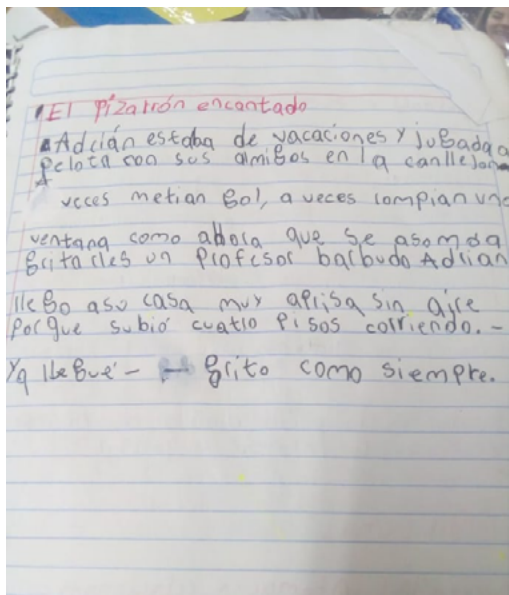 El Pizarrón encantado
Adrián estaba de vacaciones y jugada a
Pelota con sus amigos en la canllejon
A
veces metian gol, a veces rompian una
ventana como ahora que se asomaa
gritarles un Profesor barbudo Adrian
llego asu casa muy aprisa sin aire
Porque subió cuatro Pisos corriendo. -
Ya llegué - grito como siempre.